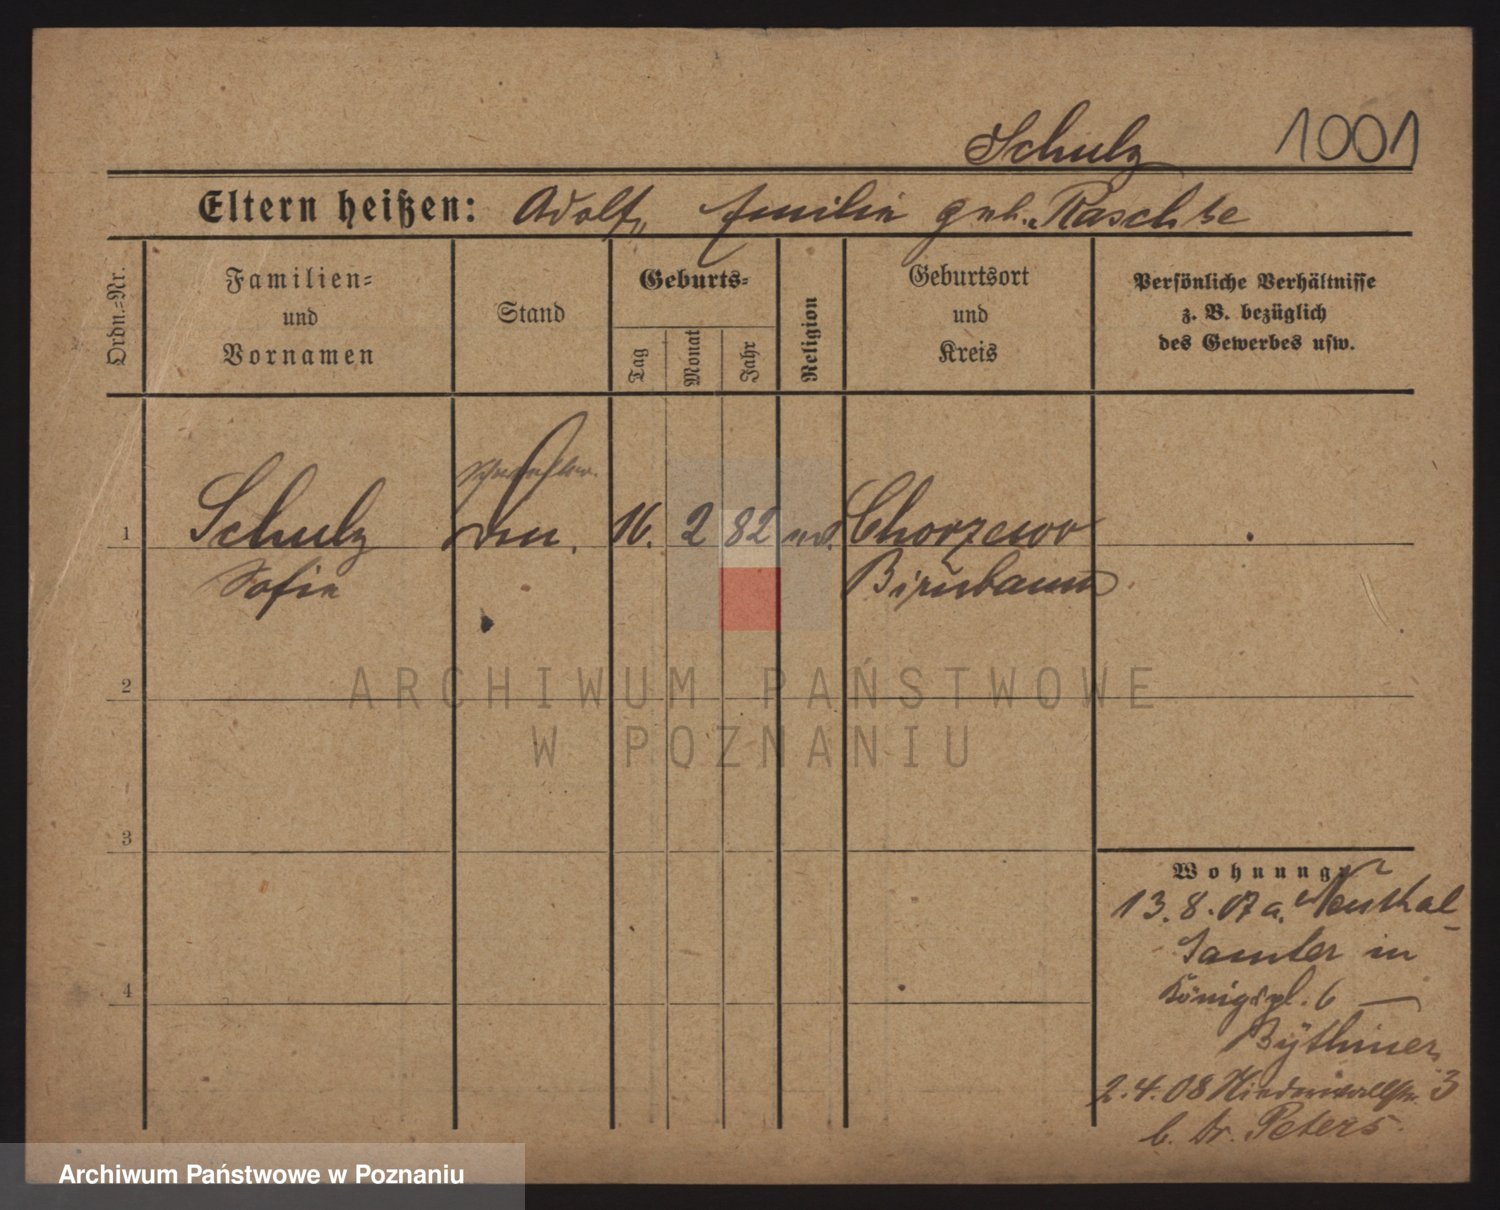 Schulz 1001
Eltern heißen: Adolf, Emilie geb. Raschke
Ordn.-Nr.
Familien-
und
Vornamen
Stand
Geburts-
Tag
Monat
Jahr
Religion
Geburtsort
und
Kreis
Persönliche Verhältnisse
z. B. bezüglich
des Gewerbes usw.
1 Schulz 16. 2 82 ev. Chorzewo
Sofie Birnbaum
2
3
4
Wohnung:
13.8.07 a. Neuthal
Samter in
Königspl. 6 —
Bythiner
2.4.08 Niederwallstr. 3
b. Dr. Peters.
ARCHIWUM PAŃSTWOWE
W POZNANIU
Archiwum Państwowe w Poznaniu